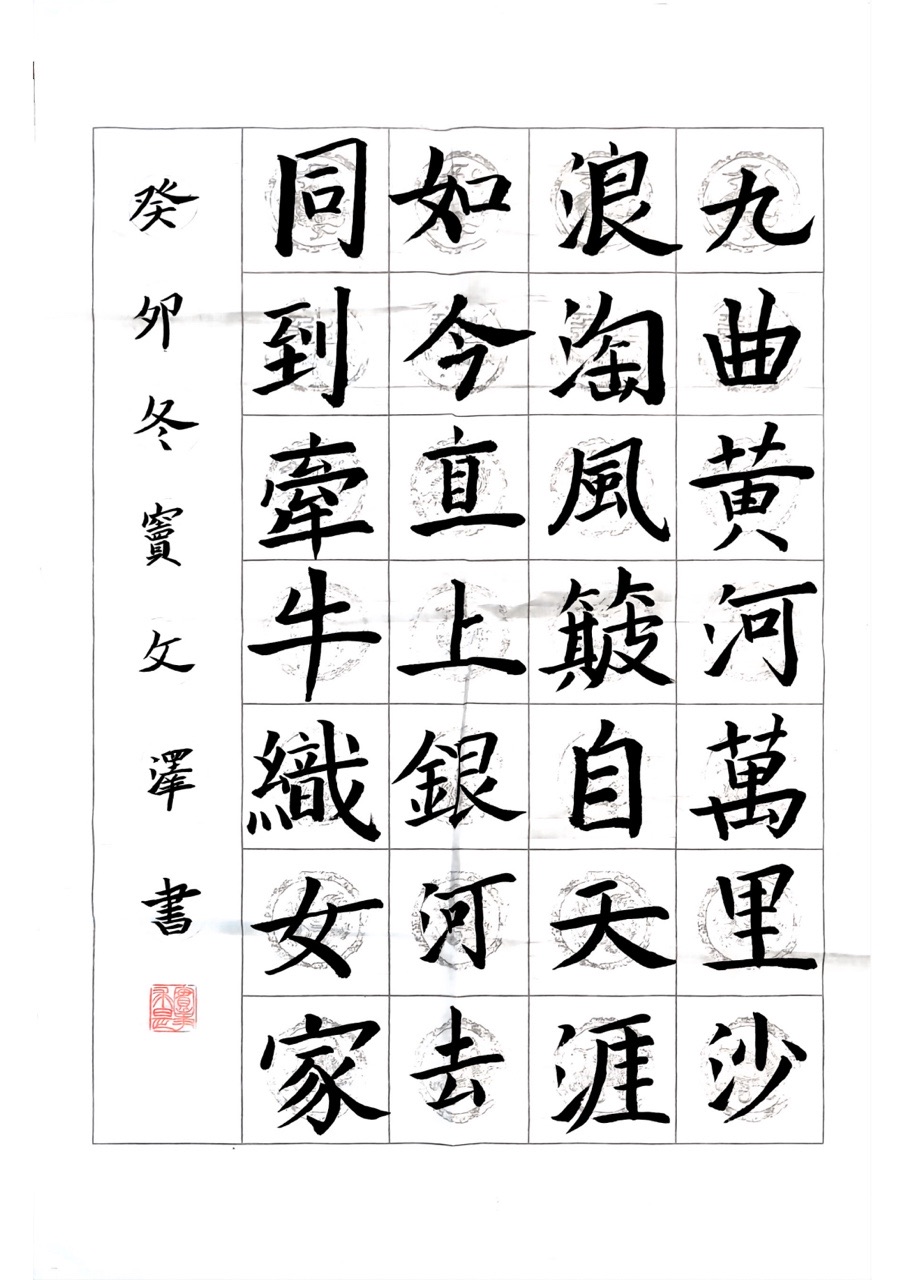 九曲黄河萬里沙
浪淘風簸自天涯
如今直上銀河去
同到牽牛織女家
癸卯冬竇文澤書